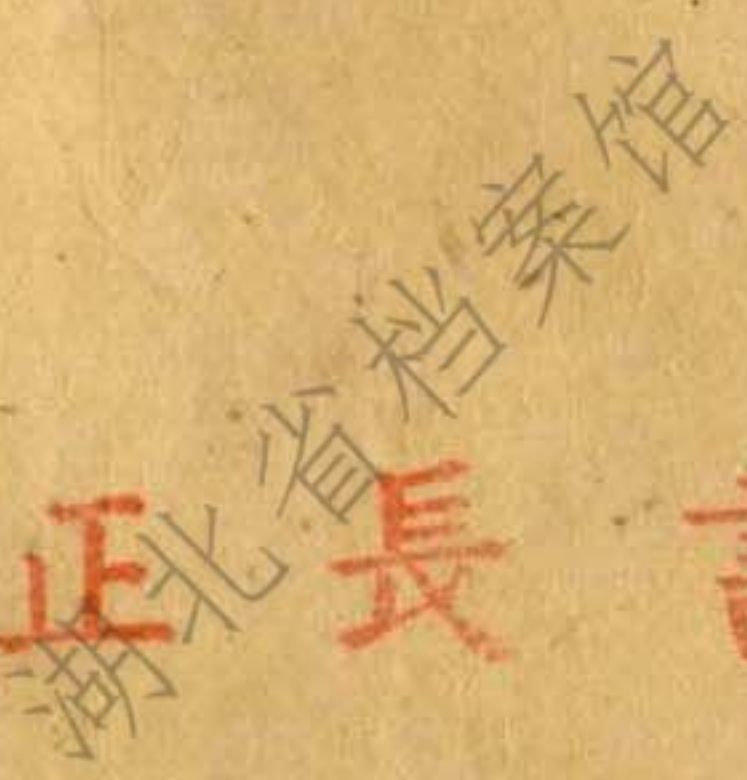 湖北省档案馆
正長